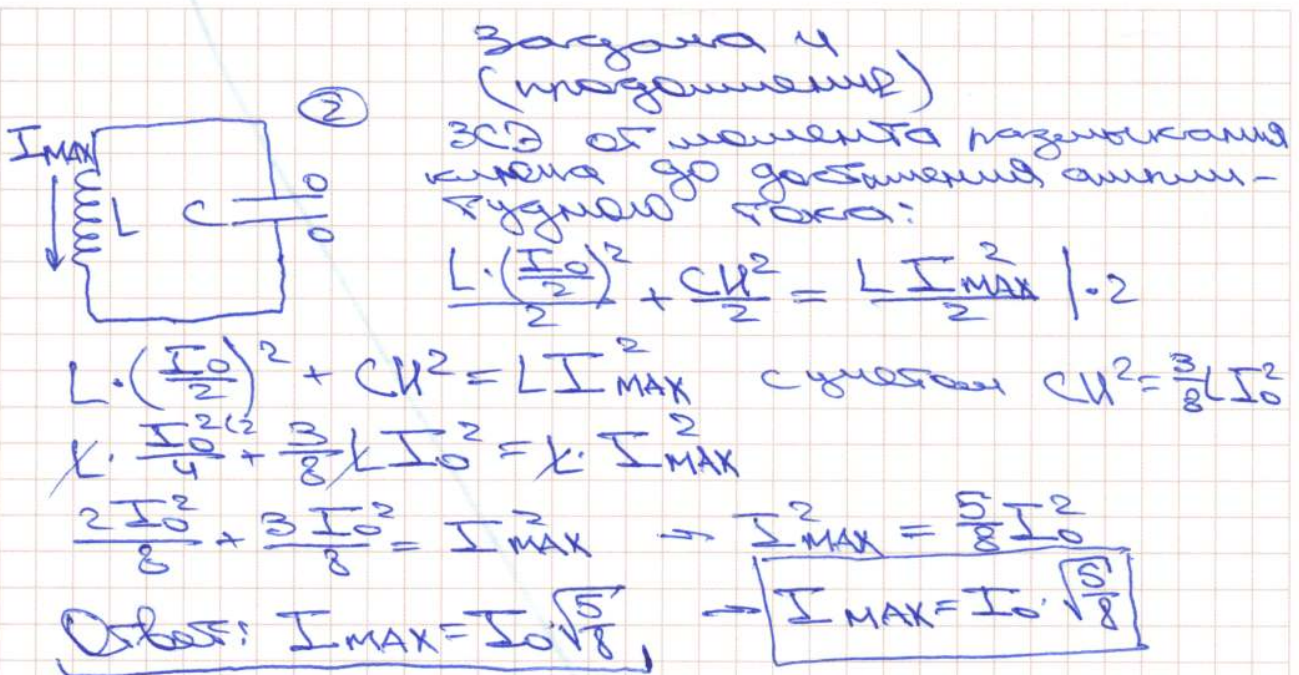 Задача 4
(продолжение)
②
ЗСЭ от момента размыкания
ключа до достижения ампли-
тудного тока:
I_MAX
L C 0
0
L·(I₀/2)²/2 + CU²/2 = L I²_MAX/2 |·2
L·(I₀/2)² + CU² = L I²_MAX с учетом CU² = 3/8 L I₀²
L· I₀²⁽²/4 + 3/8 L I₀² = L· I²_MAX
2I₀²/8 + 3I₀²/8 = I²_MAX → I²_MAX = 5/8 I₀²
Ответ: I_MAX = I₀√(5/8) → I_MAX = I₀·√(5/8)